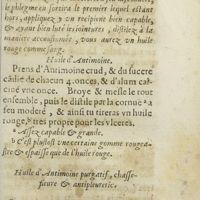 le phlegme en sortira le premier lequel estant
hors, appliquez y un recipient bien capable,
& ayant bien luté les jointures, distilez à la
maniere accoustumée, vous aurez un huile
rouge comme sang.
Huile d'Antimoine.
Prens d'Antimoine crud, & du sucre
cãdie de chacun 4. onces, & d'alum cal-
ciné vne once. Broye & mesle le tout
ensemble, puis le distile par la cornuë a à
feu moderé, & ainsi tu tireras vn huile
rouge, b tres propre pour les vlceres.
a Assez capable & grande.
b C'est plustost vne certaine gomme rougea-
stre & espaisse que de l'huile rouge.
Huile d'Antimoine purgatif, chasse-
fieure & antipleuretic.